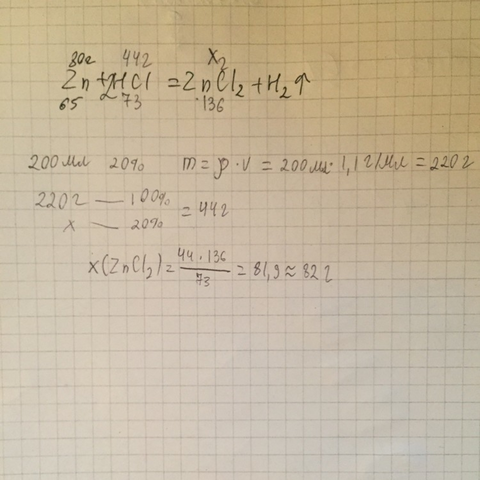 80г 44г X₂
Zn + 2HCl = ZnCl₂ + H₂↑
65 73 136
200мл 20% m = ρ · v = 200мл · 1,1г/мл = 220г
220г — 100% = 44г
x — 20%
x(ZnCl₂) = 44 · 136 / 73 = 81,9 ≈ 82г